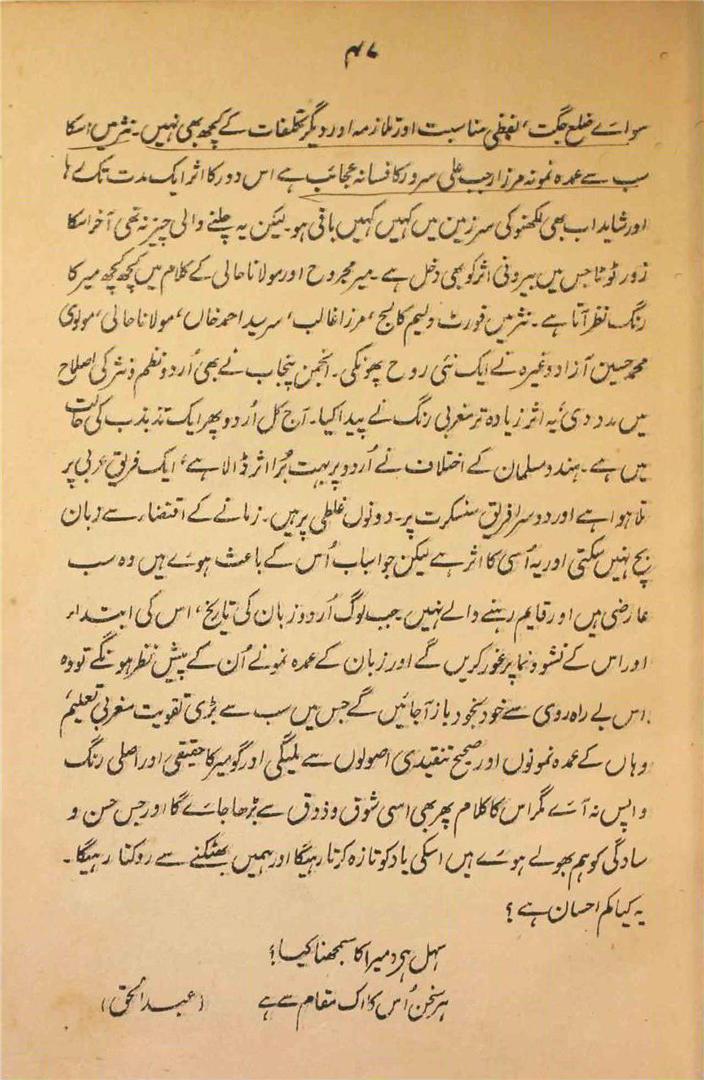 ۴۷
سواے ضلع جگت، لفظی مناسبت اور تلازمہ اور دیگر تکلفات کے کچھ بھی نہیں۔ نثر میں اسکا
سب سے عمدہ نمونہ مرزا رجب علی سرور کا فسانہ عجائب ہے اس دور کا اثر ایک مدت تک رہا
اور شاید اب بھی لکھنؤ کی سرزمین میں کہیں کہیں باقی ہو۔ لیکن یہ چلنے والی چیز نہ تھی آخر اسکا
زور ٹوٹا جس میں بیرونی اثر کو بھی دخل ہے۔ میر مجروح اور مولانا حالی کے کلام میں کچھ کچھ میر کا
رنگ نظر آتا ہے۔ نثر میں فورٹ ولیم کالج، مرزا غالب، سر سید احمد خاں، مولانا حالی، مولوی
محمد حسین آزاد وغیرہ نے ایک نئی روح پھونکی۔ انجمن پنجاب نے بھی اُردو نظم و نثر کی اصلاح
میں مدد دی، یہ اثر زیادہ تر مغربی رنگ نے پیدا کیا۔ آج کل اُردو پھر ایک تذبذب کی حالت
میں ہے۔ ہندو مسلمان کے اختلاف نے اُردو پر بہت بُرا اثر ڈالا ہے، ایک فریق عربی پر
تلا ہوا ہے اور دوسرا فریق سنسکرت پر۔ دونوں غلطی پر ہیں۔ زمانے کے اقتضاء سے زبان
بچ نہیں سکتی اور یہ اُسی کا اثر ہے لیکن جو اسباب اُس کے باعث ہوے ہیں وہ سب
عارضی ہیں اور قایم رہنے والے نہیں۔ جب لوگ اُردو زبان کی تاریخ، اس کی ابتداء
اور اس کے نشو و نما پر غور کریں گے اور زبان کے عمدہ نمونے اُن کے پیش نظر ہونگے تو وہ
اس بے راہ روی سے خود بخود باز آجائیں گے جس میں سب سے بڑی تقویت مغربی تعلیم،
وہاں کے عمدہ نمونوں اور صحیح تنقیدی اصولوں سے ملیگی اور گو میر کا حقیقی اور اصلی رنگ
واپس نہ آے مگر اس کا کلام پھر بھی اسی شوق و ذوق سے پڑھا جاے گا اور جس حسن و
سادگی کو ہم بھولے ہوے ہیں اسکی یاد کو تازہ کرتا رہیگا اور ہمیں بھٹکنے سے روکتا رہیگا۔
یہ کیا کم احسان ہے؟
سہل ہے میر کا سمجھنا کیا؛
ہر سخن اُس کا اک مقام سے ہے (عبدالحق)